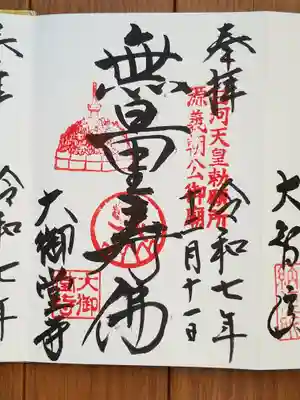 奉拝
白河天皇勅願所
源義朝公御廟
令和七年
月十一日
無量寿佛
大御堂寺
大御堂寺
大智院
令和七年